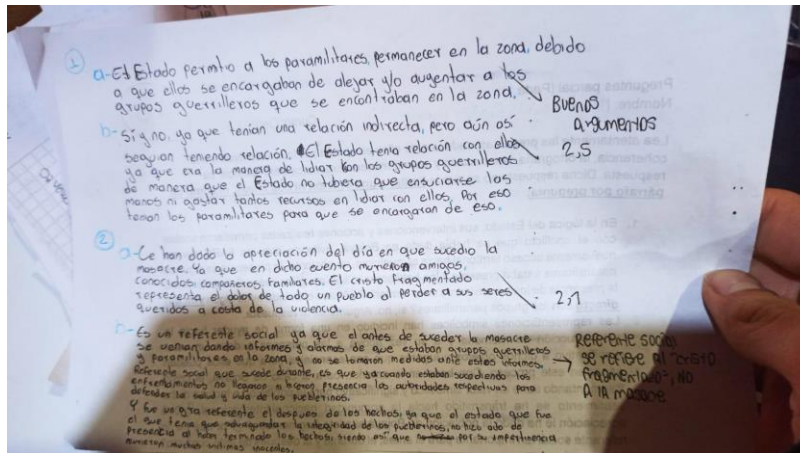 1
a- El Estado permitio a los paramilitares, permanecer en la zona, debido
a que ellos se encargaban de alejar y/o augentar a los
grupos guerrilleros que se encontraban en la zona.
Buenos
argumentos
2,5
b- Si y no, ya que tenian una relación indirecta, pero aún así
seguian teniendo relación. El Estado tenia relación con ellos
ya que era la manera de lidiar con los grupos guerrilleros
de manera que el Estado no tubiera que ensuciarse las
manos ni gastar tantos recursos en lidiar con ellos, Por eso
tenian los paramilitares para que se encargaran de eso.
2
a- Le han dado la apreciación del día en que sucedio la
masacre. Ya que en dicho evento murieron amigos,
conocidos, compañeros, familiares. El cristo fragmentado
representa el dolor de todo un pueblo al perder a sus seres
queridos a costa de la violencia.
2,1
b- Es un referente social ya que el antes de suceder la masacre
se venian dando informes y alarmas de que estaban grupos guerrilleros
y paramilitares en la zona, y no se tomaron medidas ante estos informes.
Referente social que sucede durante, es que ya cuando estaban sucediendo los
enfrentamientos no llegaron n hicieron presencia las autoridades respectivas para
defender la salud y vida de los pueblerinos.
Y fue un gra referente el despues de los hechos, ya que el estado que fue
el que tenia que salvaguardar la integridad de los pueblerinos, no hizo acto de
presencia al haber terminado los hechos, siendo así que por su impertinencia
murieron muchas victimas inocentes.
Referente social
se refiere al "cristo
fragmentado", NO
A la masacre